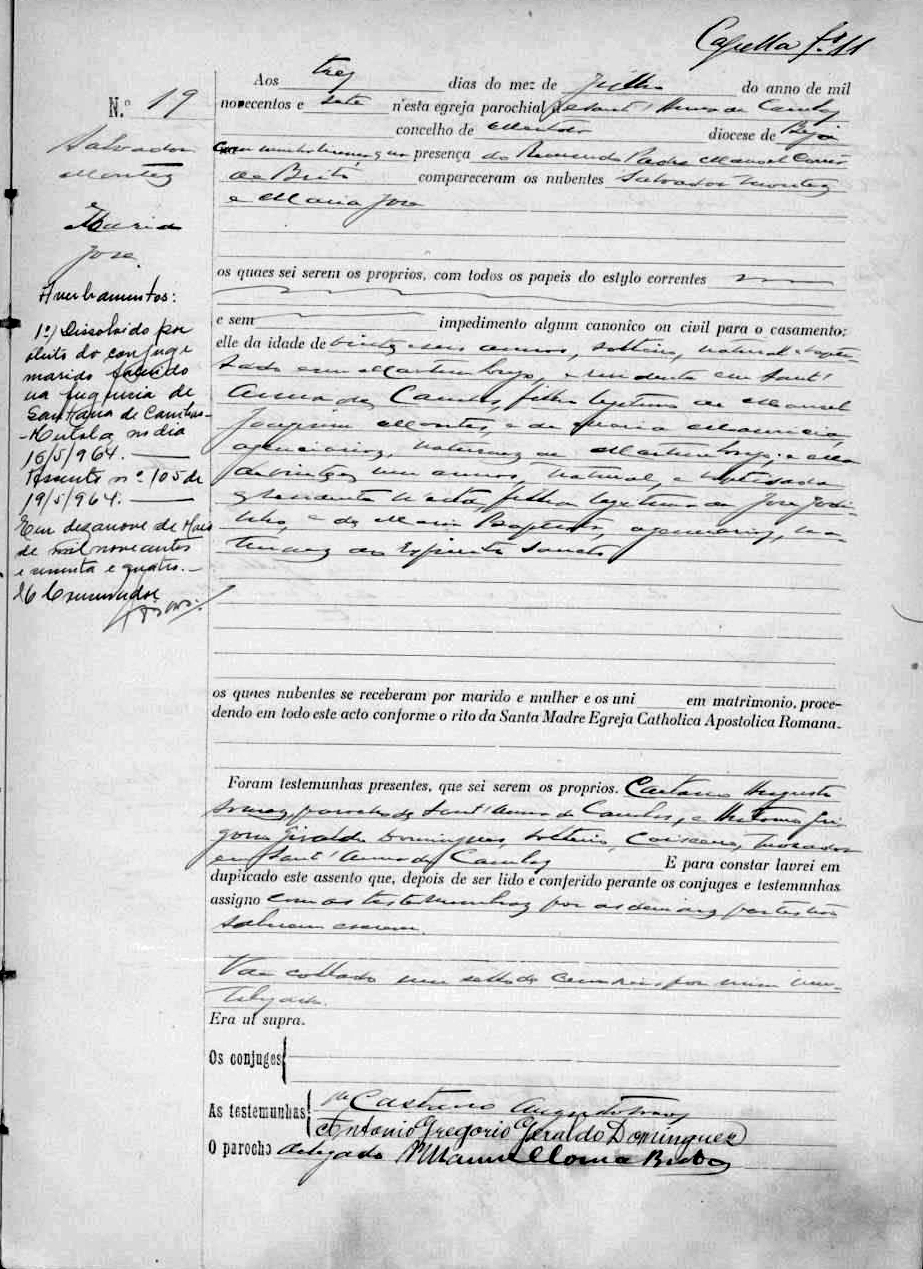 Capella
N.º 19
Salvador
Montez
e
Maria
José.
Averbamentos:
1º) Dissolvido por
óbito do conjuge
marido falecido
na freguesia de
Santana de Cambas-
-Mértola no dia
16/5/964.
Assento nº 105 de
19/5/964.
Em dezanove de Maio
de mil novecentos
e sessenta e quatro.
O Conservador
Aos tres dias do mez de Julho do anno de mil
novecentos e sete n'esta egreja parochial de Sant'Anna de Cambas
concelho de Mertola diocese de Beja
na presença do Reverendo Padre Manoel
de Brito compareceram os nubentes Salvador Montez
e Maria José
os quaes sei serem os proprios, com todos os papeis do estylo correntes
e sem impedimento algum canonico ou civil para o casamento;
elle da idade de vinte seis annos, solteiro, natural e bapti-
sado em e residente em Sant'
Anna de Cambas, filho legitimo de Manoel
Joaquim Montes, e de Maria
naturaes de e ella
de vinte um annos, natural, e baptisada
e residente n'esta, filha legitima de José Godi-
nho, e de Maria Baptista, na-
turaes do Espirito Sancto
os quaes nubentes se receberam por marido e mulher e os uni em matrimonio, proce-
dendo em todo este acto conforme o rito da Santa Madre Egreja Catholica Apostolica Romana.
Foram testemunhas presentes, que sei serem os proprios, Caetano Augusto
parocho de Sant'Anna de Cambas, e Antonio Gre-
gorio Giraldo Domingues, solteiro, caixeiro, morador
em Sant'Anna de Cambas E para constar lavrei em
duplicado este assento que, depois de ser lido e conferido perante os conjuges e testemunhas
assigno com as testemunhas por as demais partes não
saberem escrever.
Vae collado um sello de cem reis por mim inu-
tilizado.
Era ut supra.
Os conjuges
As testemunhas Caetano Augusto
Antonio Gregorio Geraldo Dominguez
O parocho delegado P. Manuel Brito